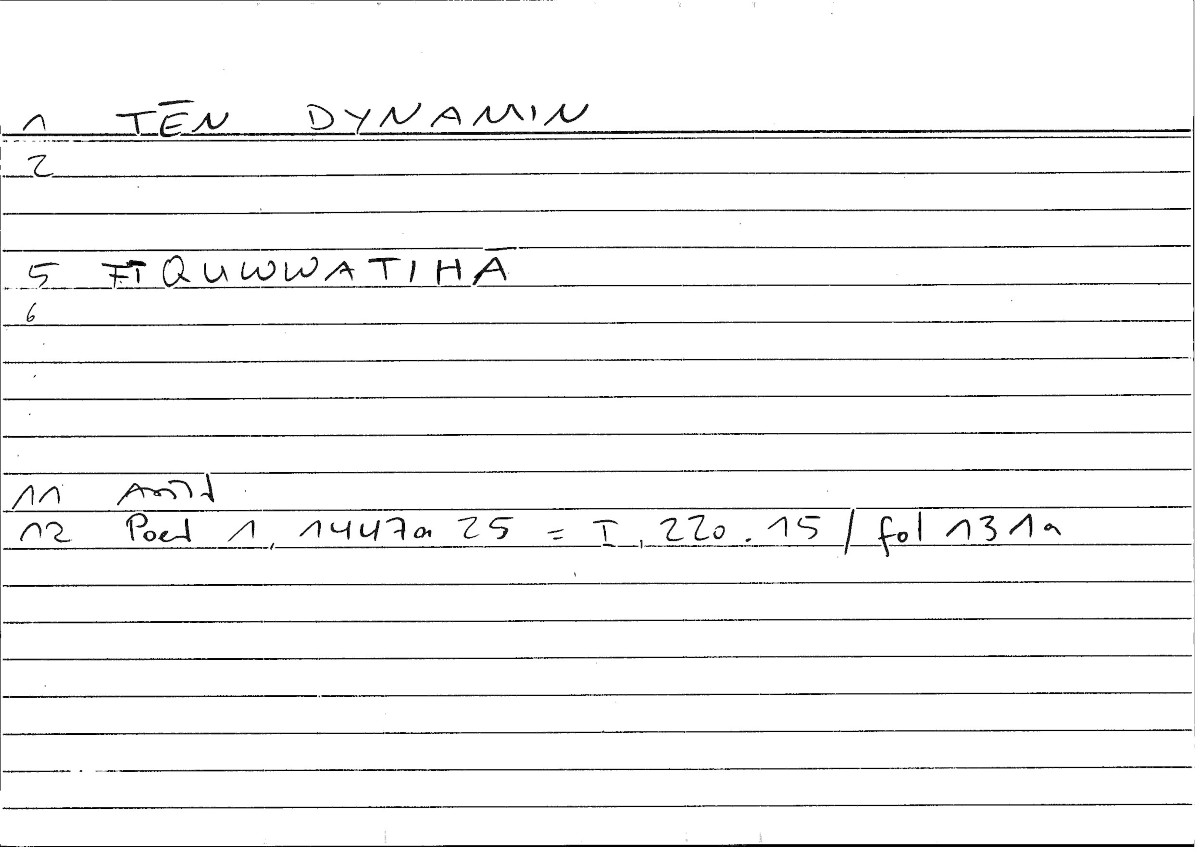 1 TĒN DYNAMIN
2
5 FI QUWWATIHĀ
6
11
12 Poet 1, 1447a 25 = I, 220.15 / fol 131a